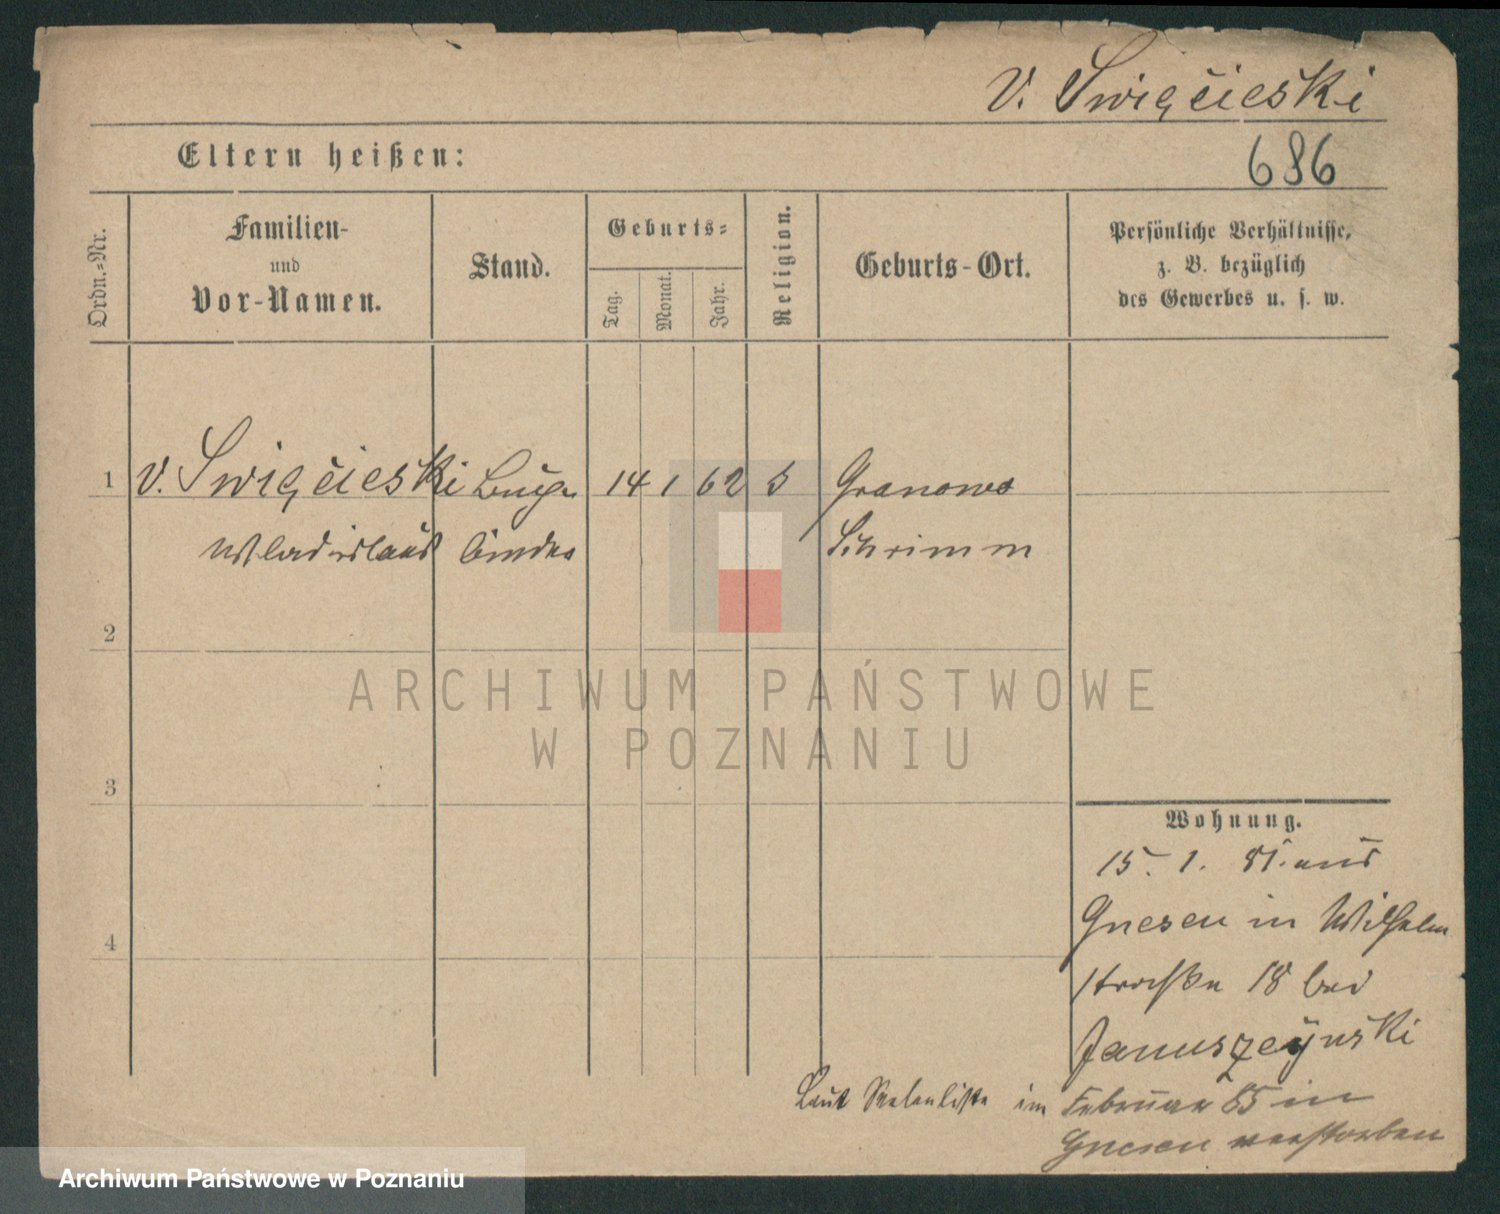 v. Swięćieski
Eltern heißen:
686
Ordn.-Nr.
Familien-
und
Vor-Namen.
Stand.
Geburts-
Tag.
Monat.
Jahr.
Religion.
Geburts-Ort.
Persönliche Verhältnisse,
z. B. bezüglich
des Gewerbes u. s. w.
1 v. Swięćieski 14 1 62 Granowo
Wladislaus Schrimm
2
3
4
Wohnung.
15. 1. 81. aus
Gnesen in Wilhelm
straße 18 bei
Januszeÿnski
Laut im Februar 85 in
Gnesen verstorben
ARCHIWUM PAŃSTWOWE
W POZNANIU
Archiwum Państwowe w Poznaniu